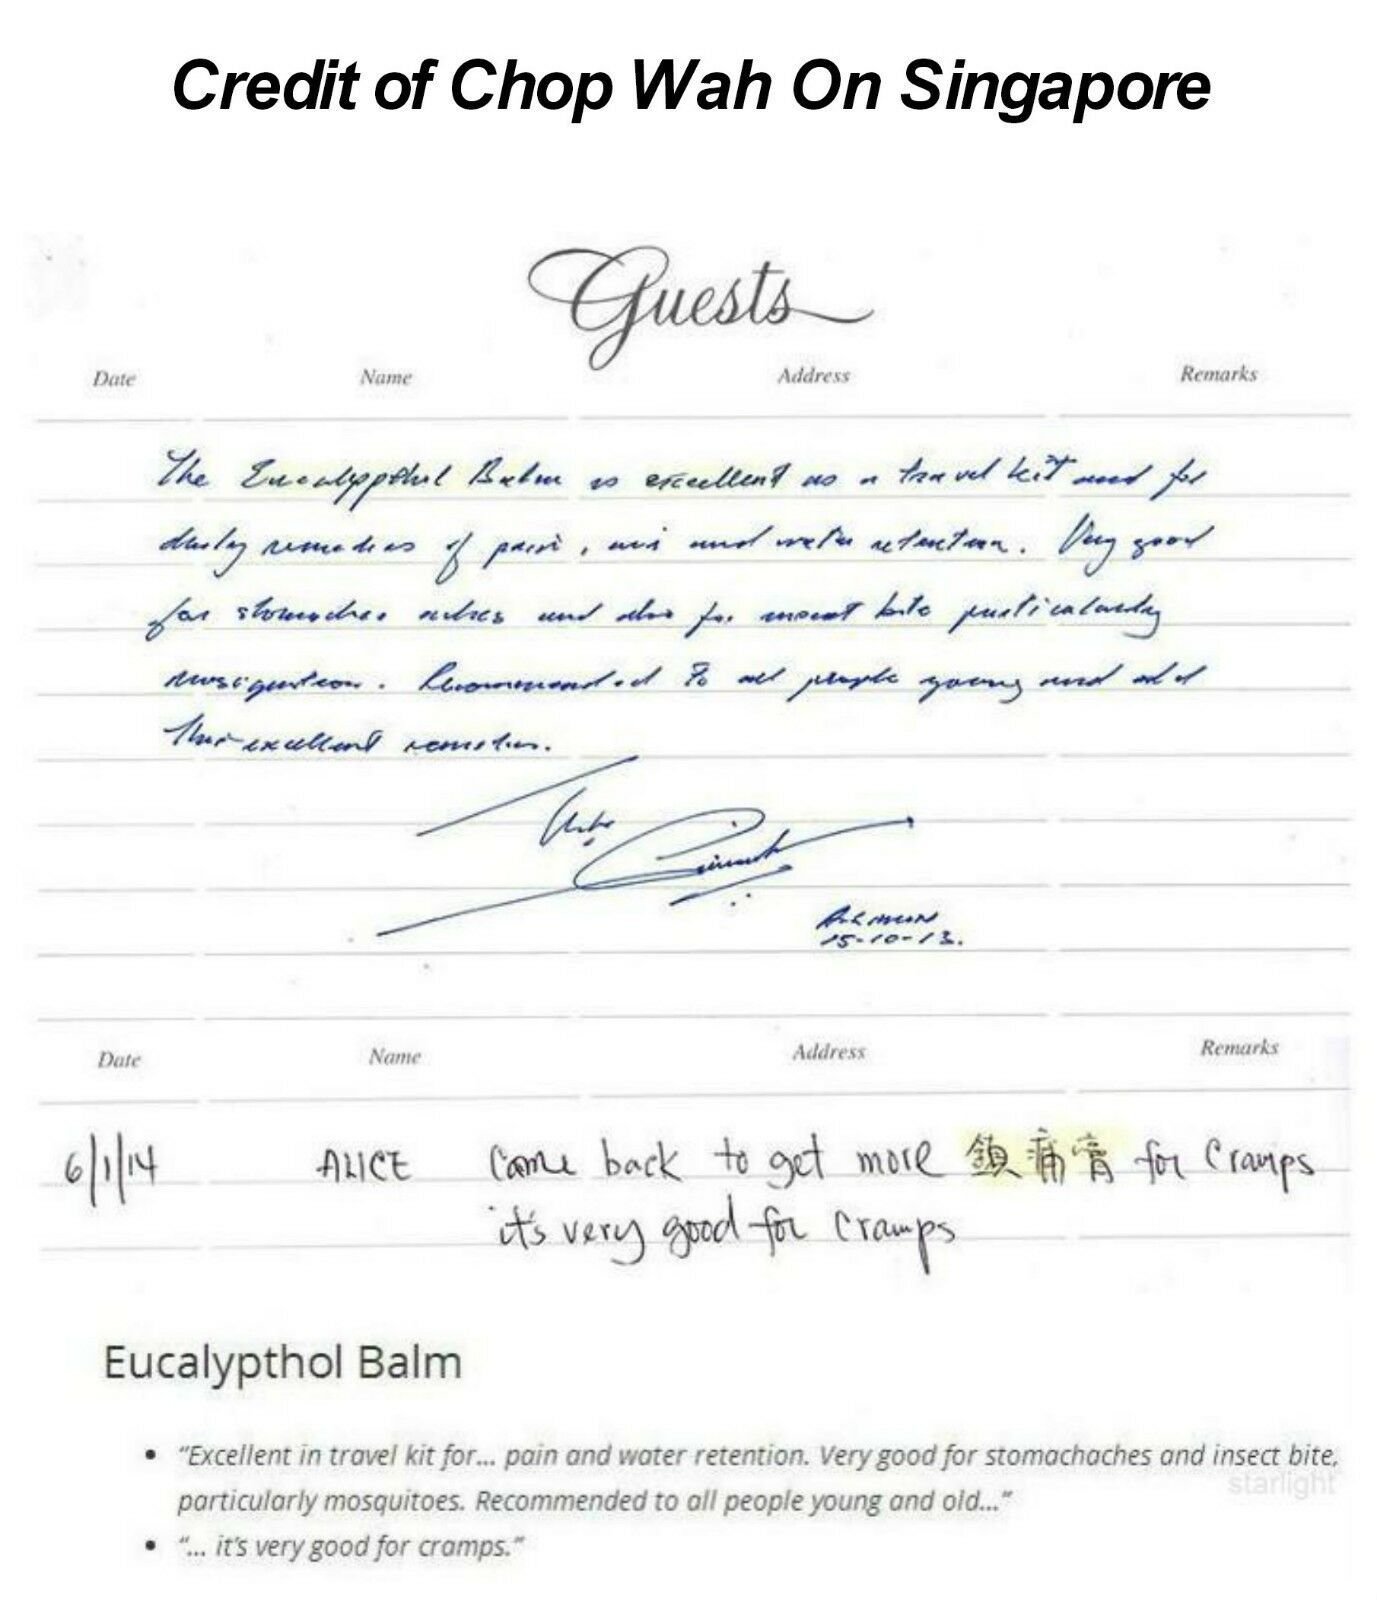 Credit of Chop Wah On Singapore
Guests
Date Name Address Remarks
The Eucalyppthol Balm is excellent as a travel kit and for
daily remedies of pain, and water retention. Very good
for stomaches aches and also for insect bite particularly
mosquitoes. Recommended to all people young and old
this excellent remedies.
15-10-13.
Date Name Address Remarks
6/1/14 ALICE Came back to get more 鎮痛膏 for cramps
it's very good for cramps
Eucalypthol Balm
• “Excellent in travel kit for... pain and water retention. Very good for stomachaches and insect bite,
starlight
particularly mosquitoes. Recommended to all people young and old...”
• “... it's very good for cramps.”